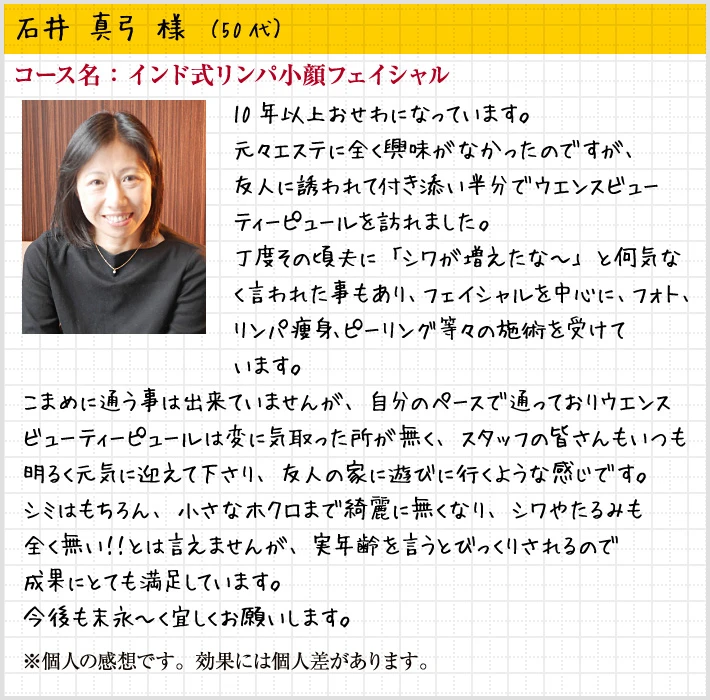 石井 真弓 様 （50代）
コース名：インド式リンパ小顔フェイシャル
10年以上おせわになっています。
元々エステに全く興味がなかったのですが、
友人に誘われて付き添い半分でウエンスビュー
ティーピュールを訪れました。
丁度その頃夫に「シワが増えたな〜」と何気な
く言われた事もあり、フェイシャルを中心に、フォト、
リンパ痩身、ピーリング等々の施術を受けて
います。
こまめに通う事は出来ていませんが、自分のペースで通っておりウエンス
ビューティーピュールは変に気取った所が無く、スタッフの皆さんもいつも
明るく元気に迎えて下さり、友人の家に遊びに行くような感じです。
シミはもちろん、小さなホクロまで綺麗に無くなり、シワやたるみも
全く無い!!とは言えませんが、実年齢を言うとびっくりされるので
成果にとても満足しています。
今後も末永〜く宜しくお願いします。
※個人の感想です。効果には個人差があります。